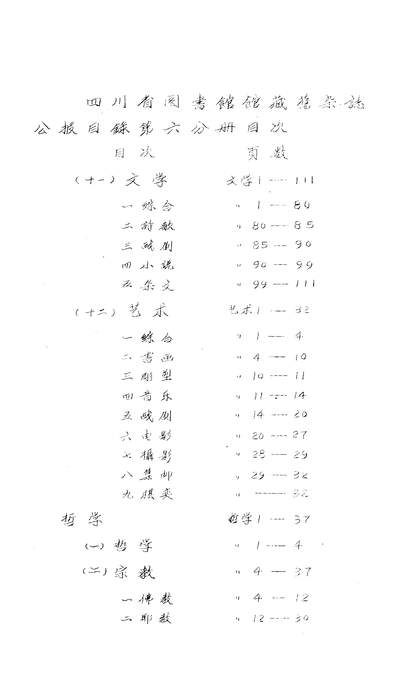 四川省図書館館藏舊杂誌
公报目錄第六分册目次
目次 頁数
(十一) 文学 文学1——111
一 綜合 〃 1——80
二 詩歌 〃 80——85
三 戏剧 〃 85——90
四 小說 〃 90——99
五 杂文 〃 99——111
(十二) 艺术 艺术1——32
一 綜合 〃 1——4
二 書画 〃 4——10
三 彫塑 〃 10——11
四 音乐 〃 11——14
五 戏剧 〃 14——20
六 电影 〃 20——27
七 攝影 〃 28——29
八 集邮 〃 29——32
九 棋奕 〃 ——32
哲学 哲学1——37
(一) 哲学 〃 1——4
(二) 宗教 〃 4——37
一 佛教 〃 4——12
二 耶教 〃 12——30